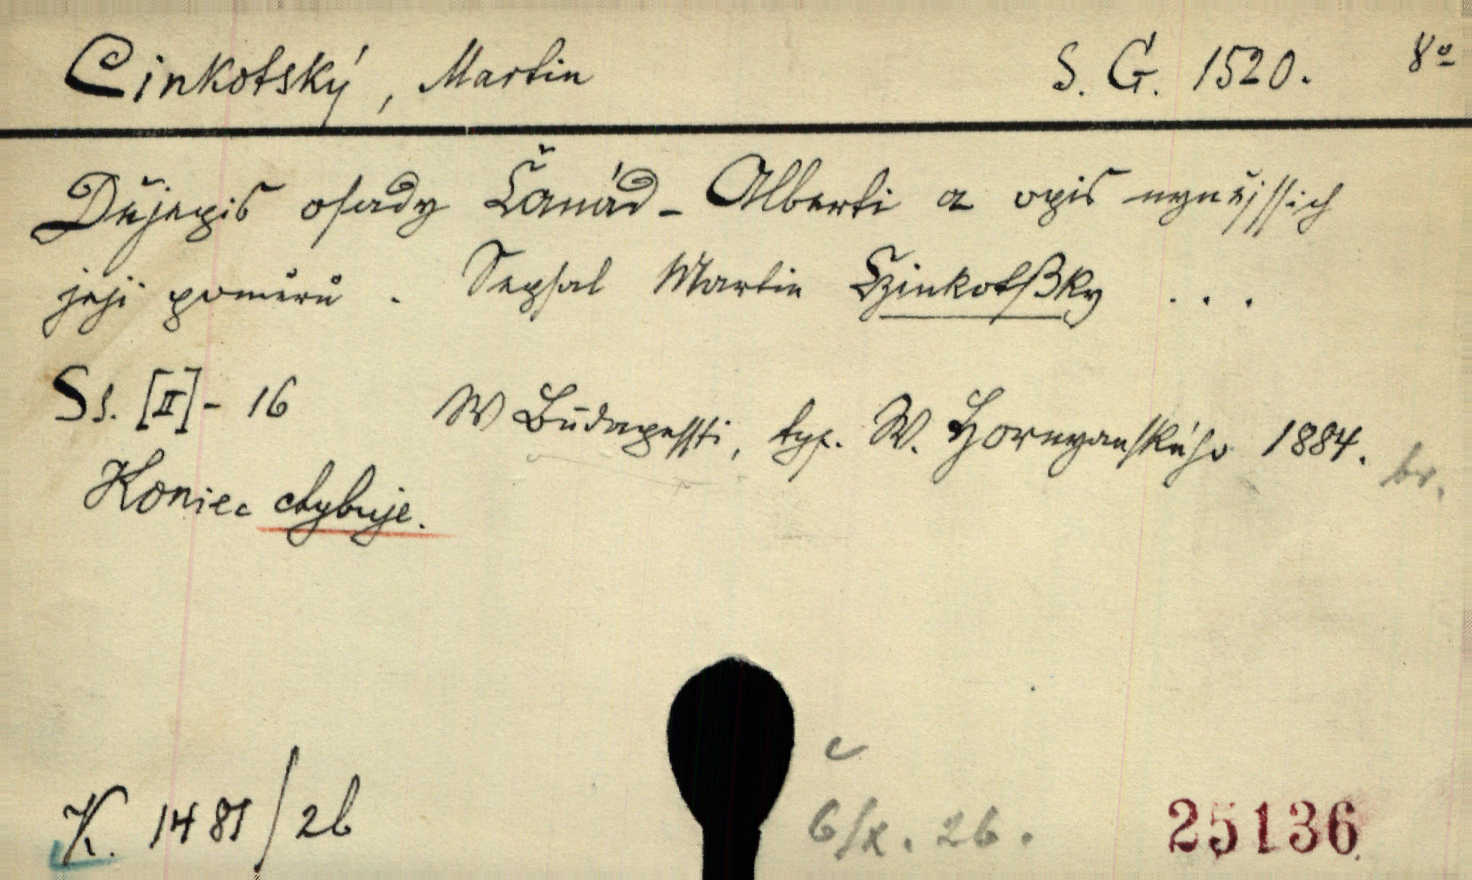 Cinkotský, Martin S. G. 1520. 8º
Dějepis osady Čanád-Alberti a opis nynějssich
její poměrů. Sepsal Martin Czinkotßky ...
Ss. [II]-16 W Budapessti, typ. W. Hornyanského 1884. br.
Koniec chybuje.
K. 1481/26
6/X. 26.
25136